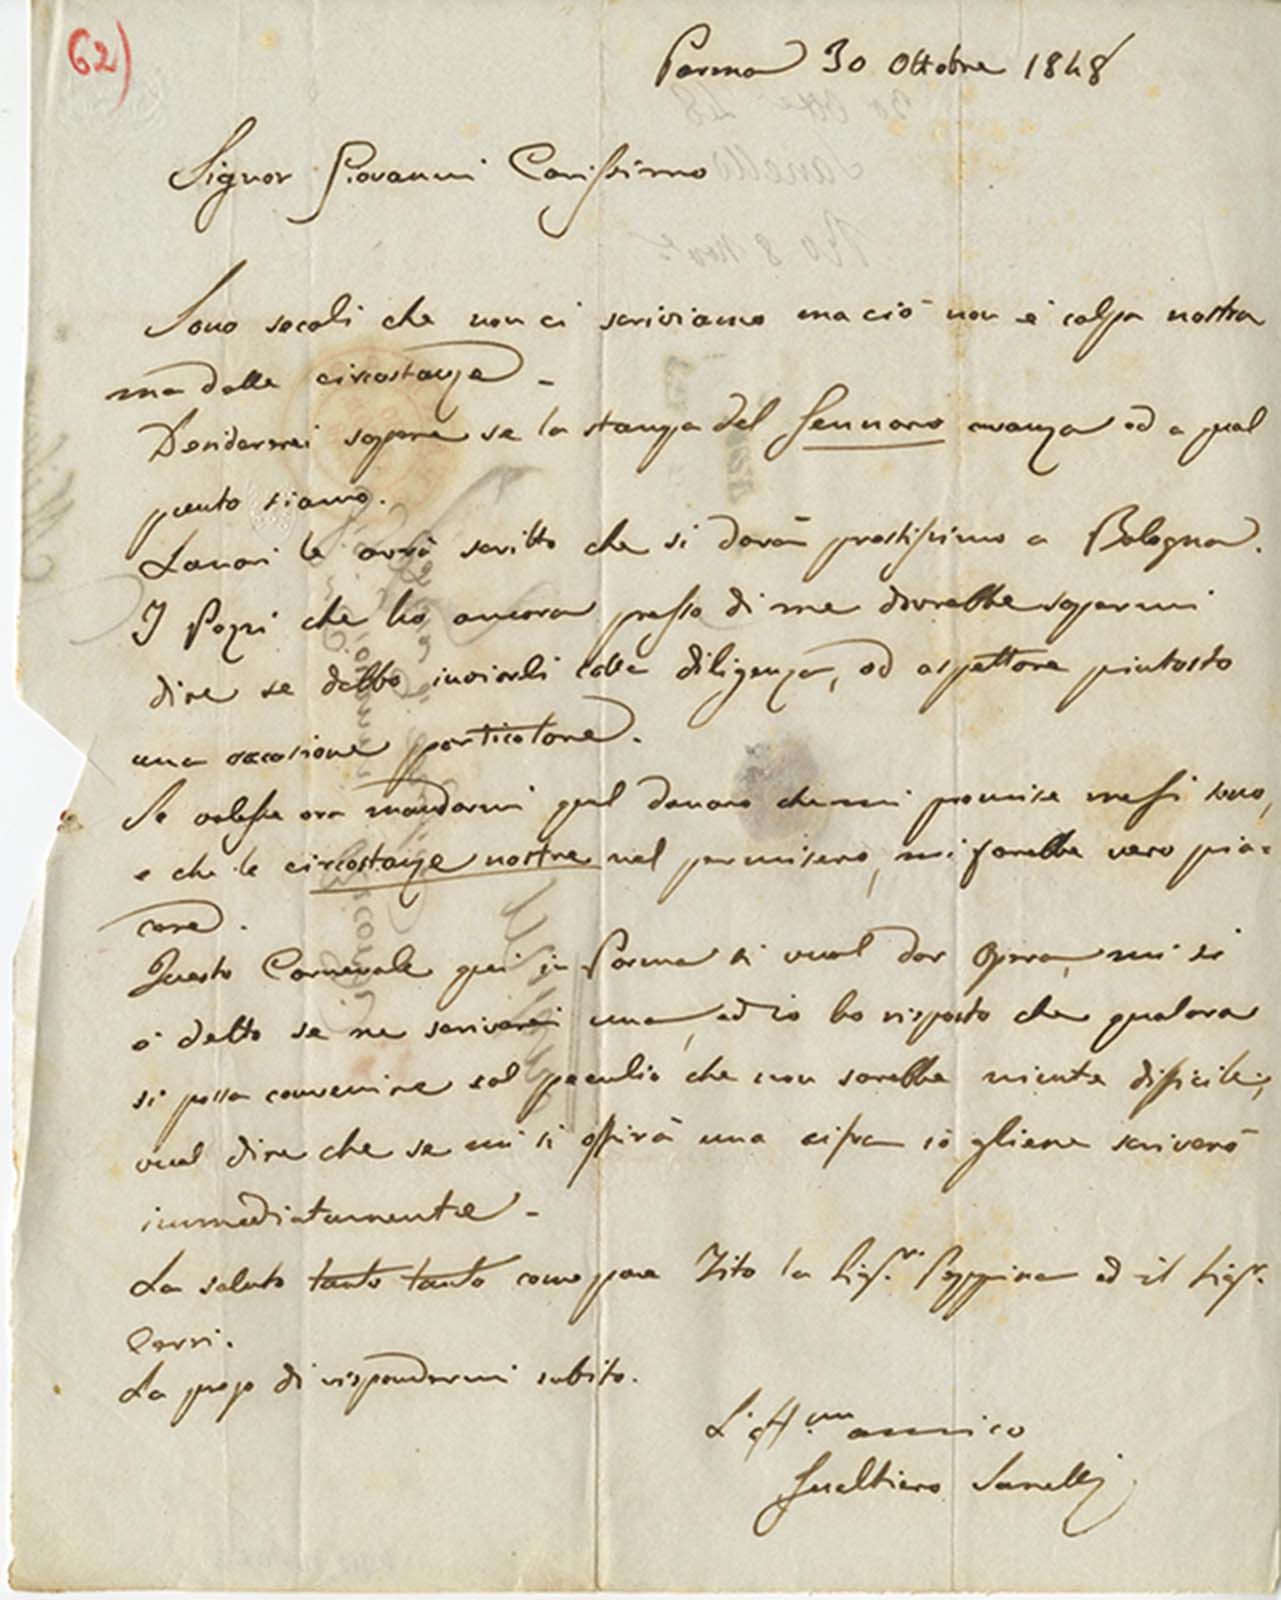 62)
Parma 30 Ottobre 1848
Signor Giovanni Carissimo
Sono secoli che non ci scriviamo ma ciò non è colpa nostra
ma delle circostanze -
Desidererei sapere se la stampa del Gennaro avanza ed a qual
punto siamo.
Lanari le avrà scritto che si darà prestissimo a Bologna.
I Pezzi che ho ancora presso di me dovrebbe sapermi
dire se debbo inviarli colla diligenza, od aspettare piutosto
una occasione particolare.
Se volesse ora mandarmi quel denaro che mi promise mesi sono,
e che le circostanze nostre nel permisero, mi farebbe vero pia=
cere.
Questo Carnevale qui in Parma si vuol dar Opera, mi si
è detto se ne scriverei una, ed io ho risposto che qualora
si possa convenire sul peculio che non sarebbe niente dificile;
vuol dire che se mi si ofrirà una cifra io gliene scriverò
immediatamente -
La saluto tanto tanto come pure Tito la Sigr. Peppina ed il Sigr.
Cerri.
La prego di rispondermi subito.
L'affmo amico
Gualtiero Sanelli